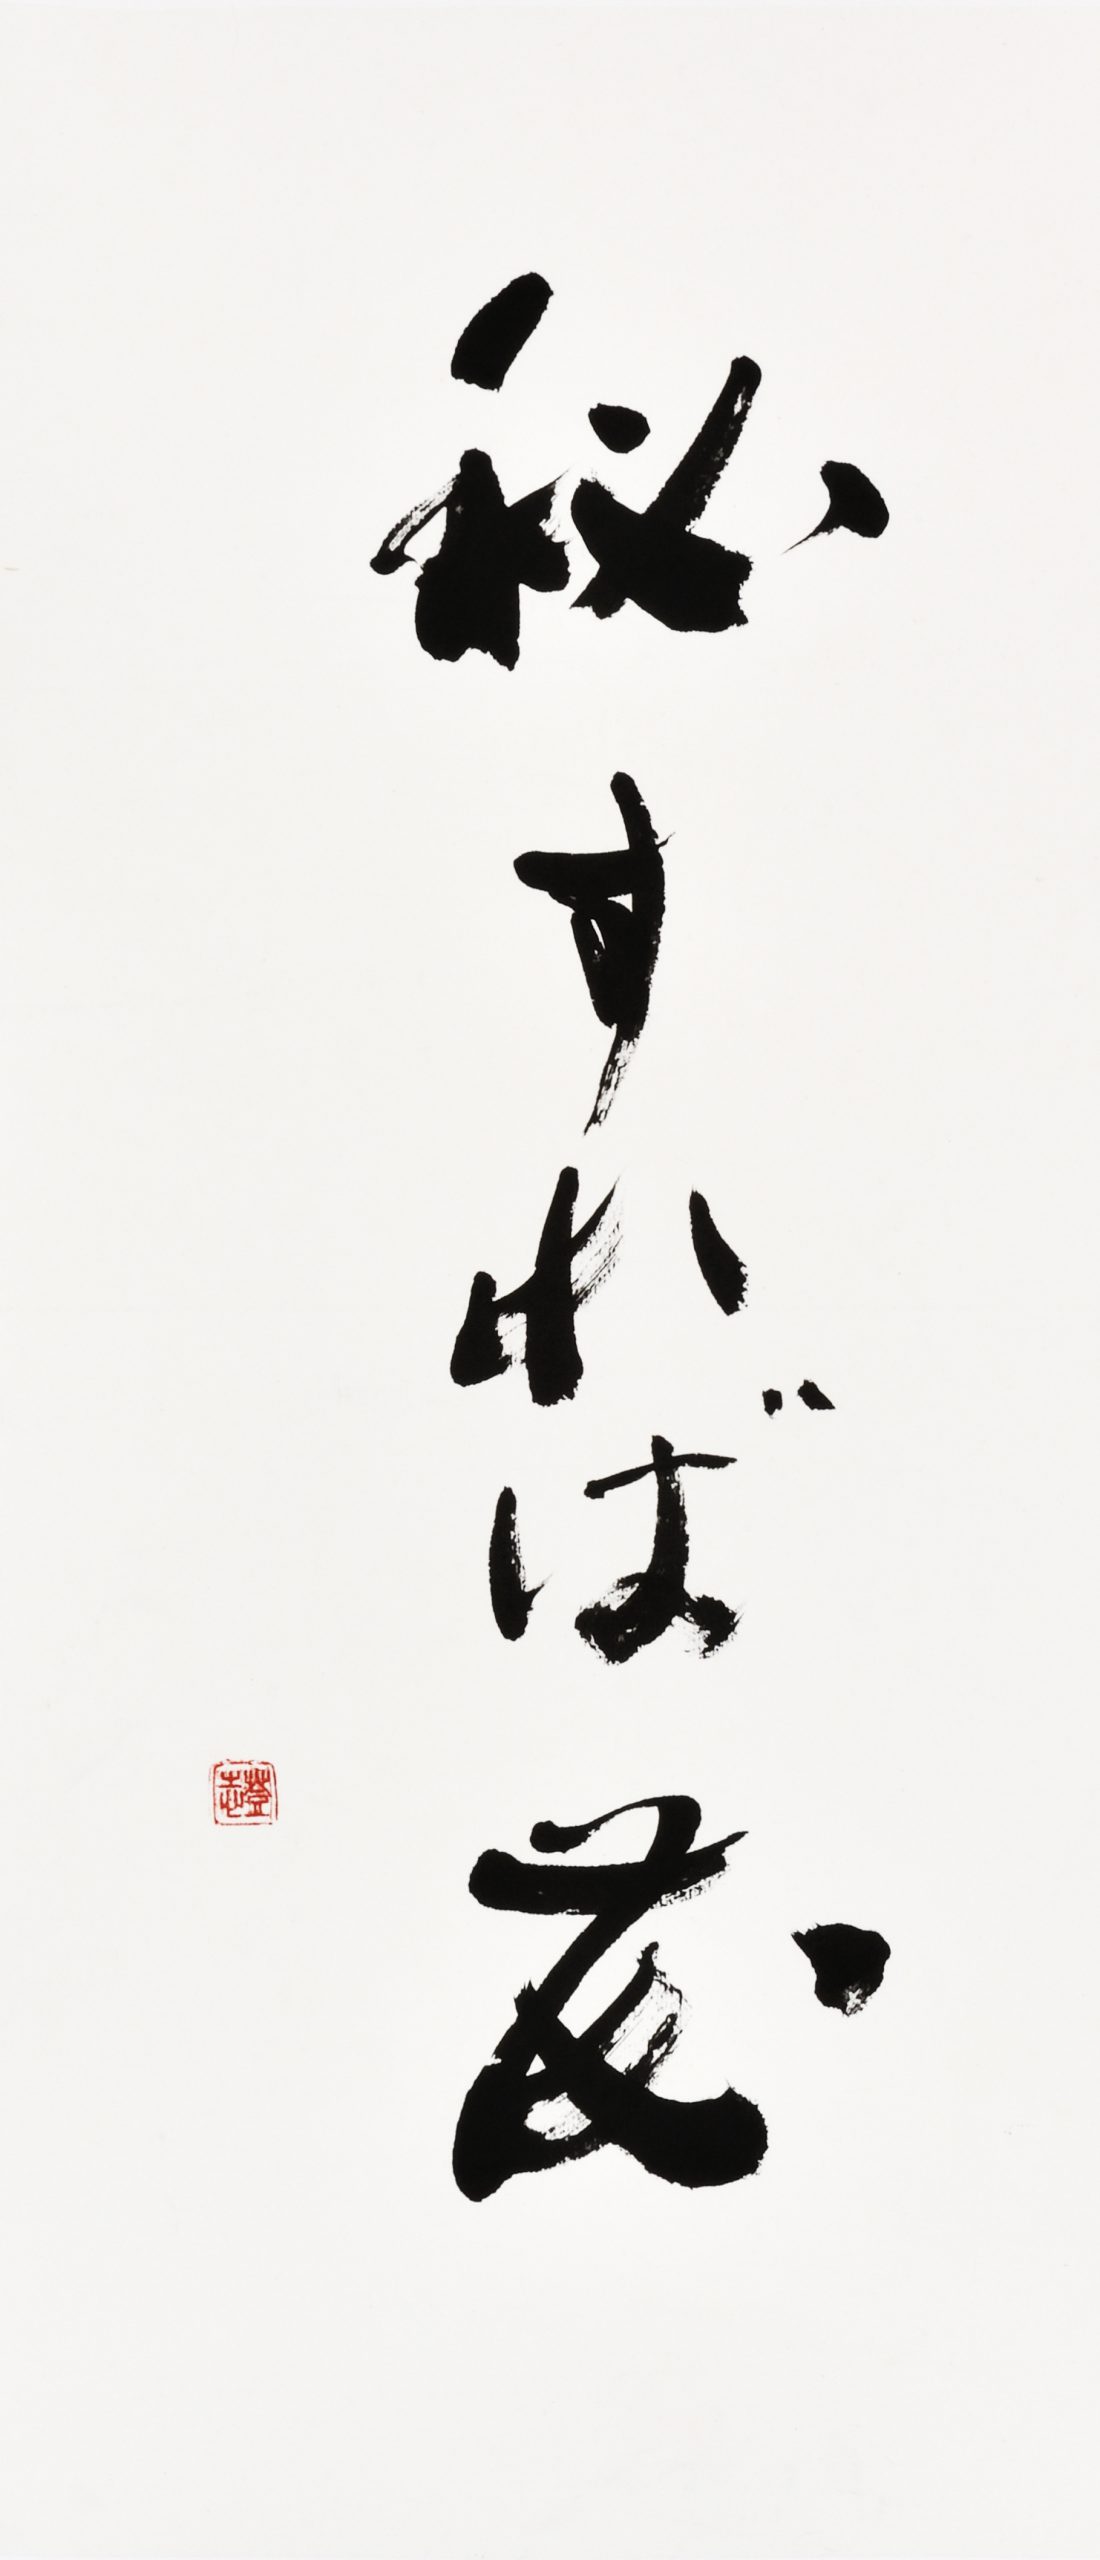 秘すれば花
登志